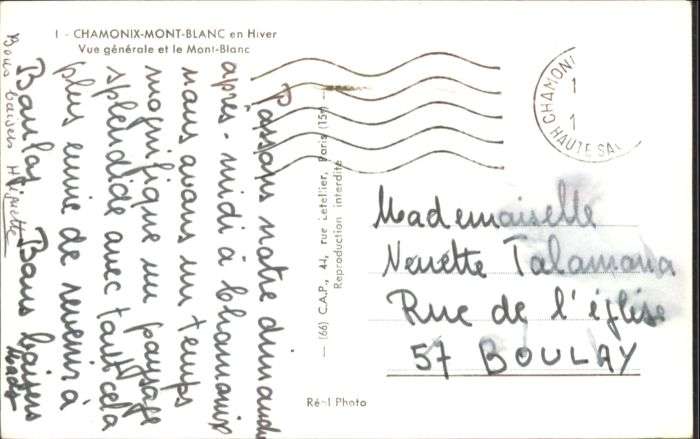 1 - CHAMONIX-MONT-BLANC en Hiver
Vue générale et le Mont-Blanc
Passons notre dimanche
après-midi à Chamonix
nous avons un temps
magnifique un paysage
splendide avec tout cela
plus envie de revenir à
Boulay Bons baisers
Bons baisers
— (66) C.A.P., 44, rue Letellier, Paris (15e) —
Reproduction interdite
CHAMONI
1
1
HAUTE SAV
Mademoiselle
Talamona
Rue de l'église
57 BOULAY
Ré-l Photo